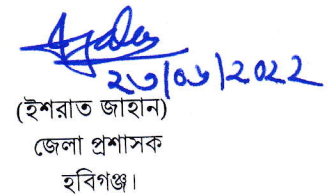 ২৩/০৬/২০২২
(ইশরাত জাহান)
জেলা প্রশাসক
হবিগঞ্জ।